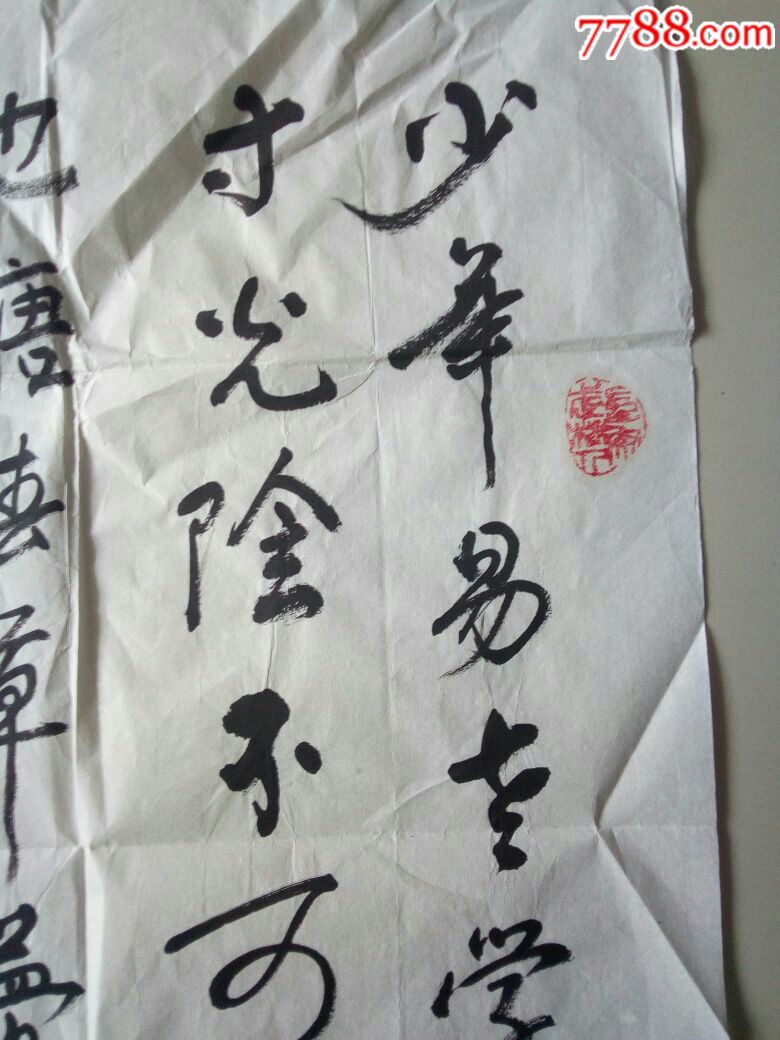 7788.com
少年易老学
寸光陰不可
池塘春草夢